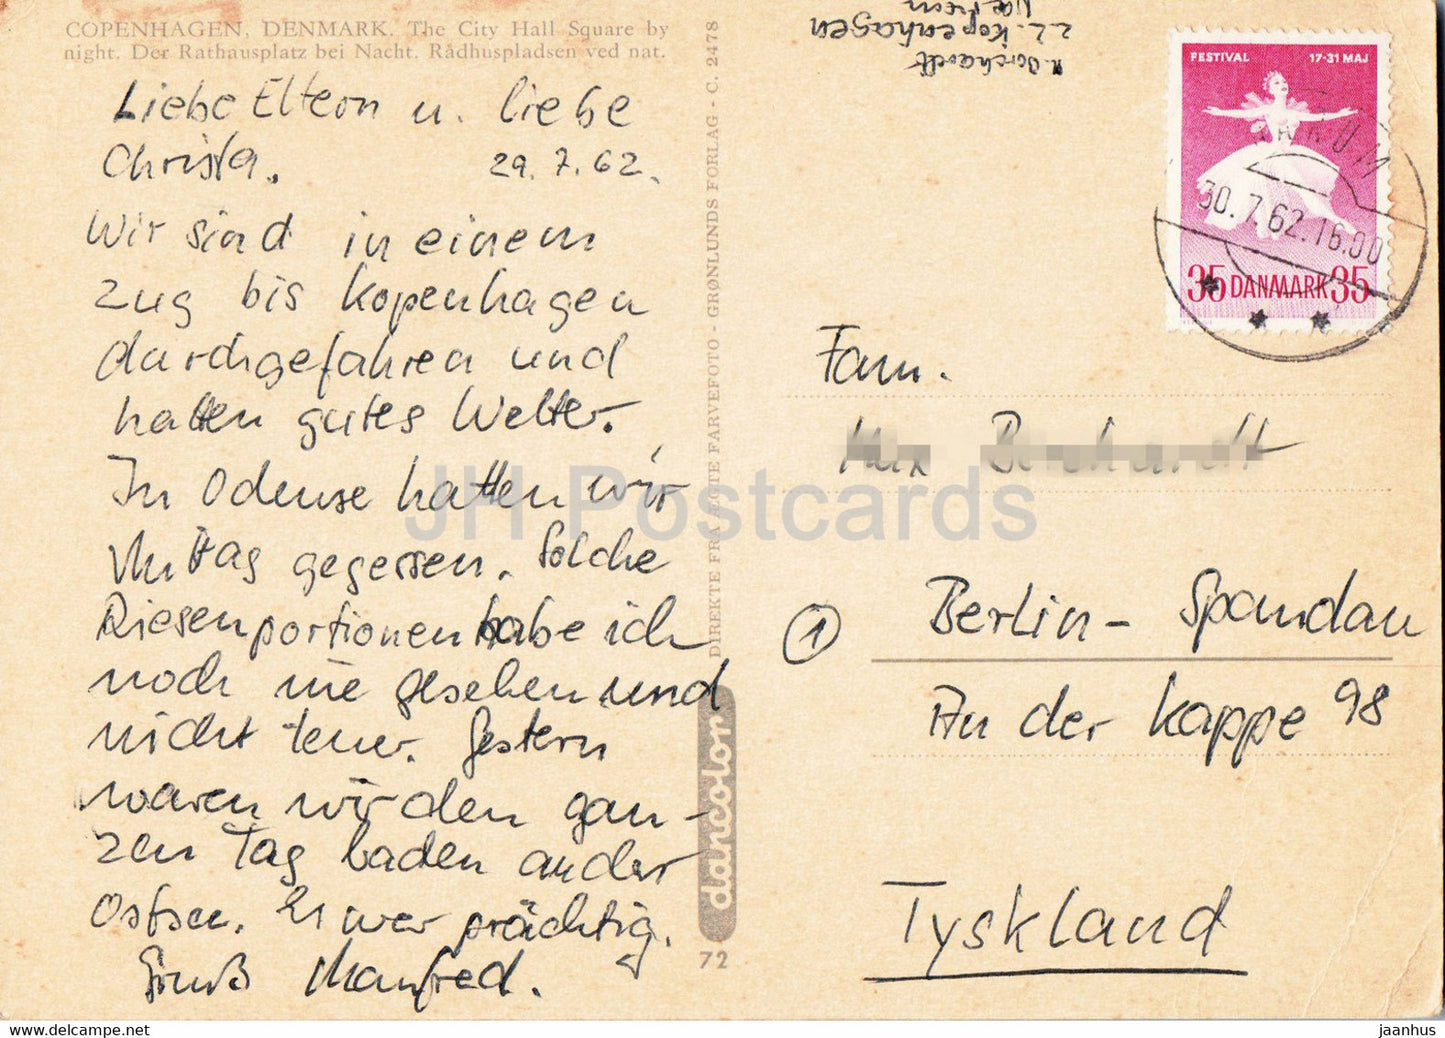 COPENHAGEN, DENMARK. The City Hall Square by
night. Der Rathausplatz bei Nacht. Rådhuspladsen ved nat.
Liebe Eltern u. liebe
Christa. 29. 7. 62.
Wir sind in einem
Zug bis Kopenhagen
durchgefahren und
hatten gutes Wetter.
In Odense hatten wir
Mittag gegessen. Solche
Riesenportionen habe ich
noch nie gesehen und
nicht teuer. Gestern
waren wir den gan-
zen Tag baden an der
Ostsee. Es war prächtig.
Gruß Manfred.
DIREKTE FRA ÆGTE FARVEFOTO - GRØNLUNDS FORLAG - C. 2478
dancolor
72
z.Z. Kopenhagen
FESTIVAL 17-31 MAJ
30.7.62.16.00
35 DANMARK 35
Fam.
①
Berlin - Spandau
An der Kappe 98
Tyskland
JH Postcards
hipstamp.com/store/jaanhus-online
jaanhus